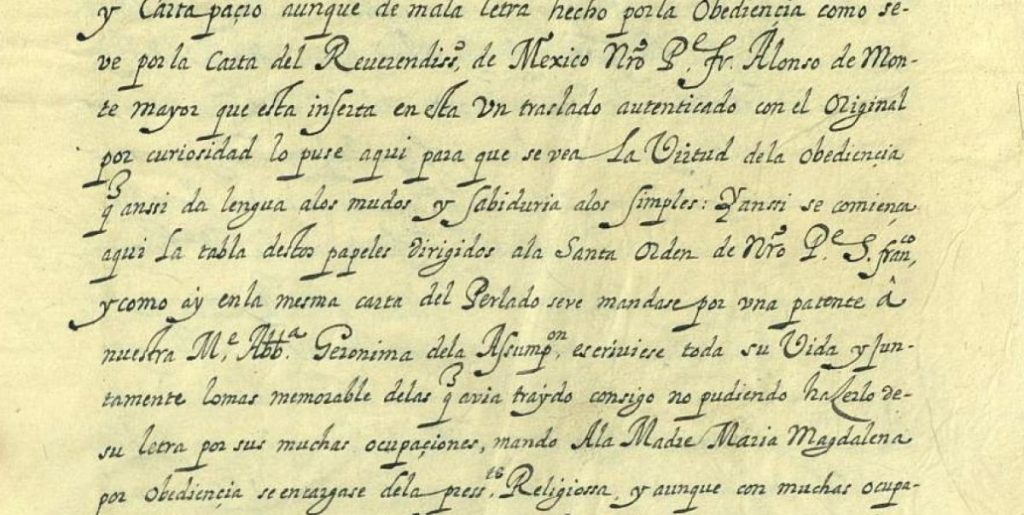 y Cartapaçio aunque de mala letra hecho por la Obediençia como se-
ve por la Carta del Reuerendiss.º de Mexico Nrō P.e fr. Alonso de Mon-
te mayor que esta inserta en esta vn traslado autenticado con el Original
por curiosidad lo puse aqui para que se vea La Virtud dela obediençia
q̃ anssi da lengua alos mudos y sabiduria alos simples: Y anssi se comiença
aqui La tabla destos papeles dirigidos ala Santa Orden de Nrō P.e S. franco,
y como ay en la mesma carta del Perlado seve mandase por vna patente â
nuestra M.e Abb.a Geronima dela Assumpon, escriviese toda su Vida y jun-
tamente lo mas memorable delas q̃ avia traydo consigo no pudiendo hazerlo de-
su letra por sus muchas ocupaçiones, mando Ala Madre Maria Magdalena
por Obediençia se encargase dela press.te Religiossa, y aunque con muchas ocupa-